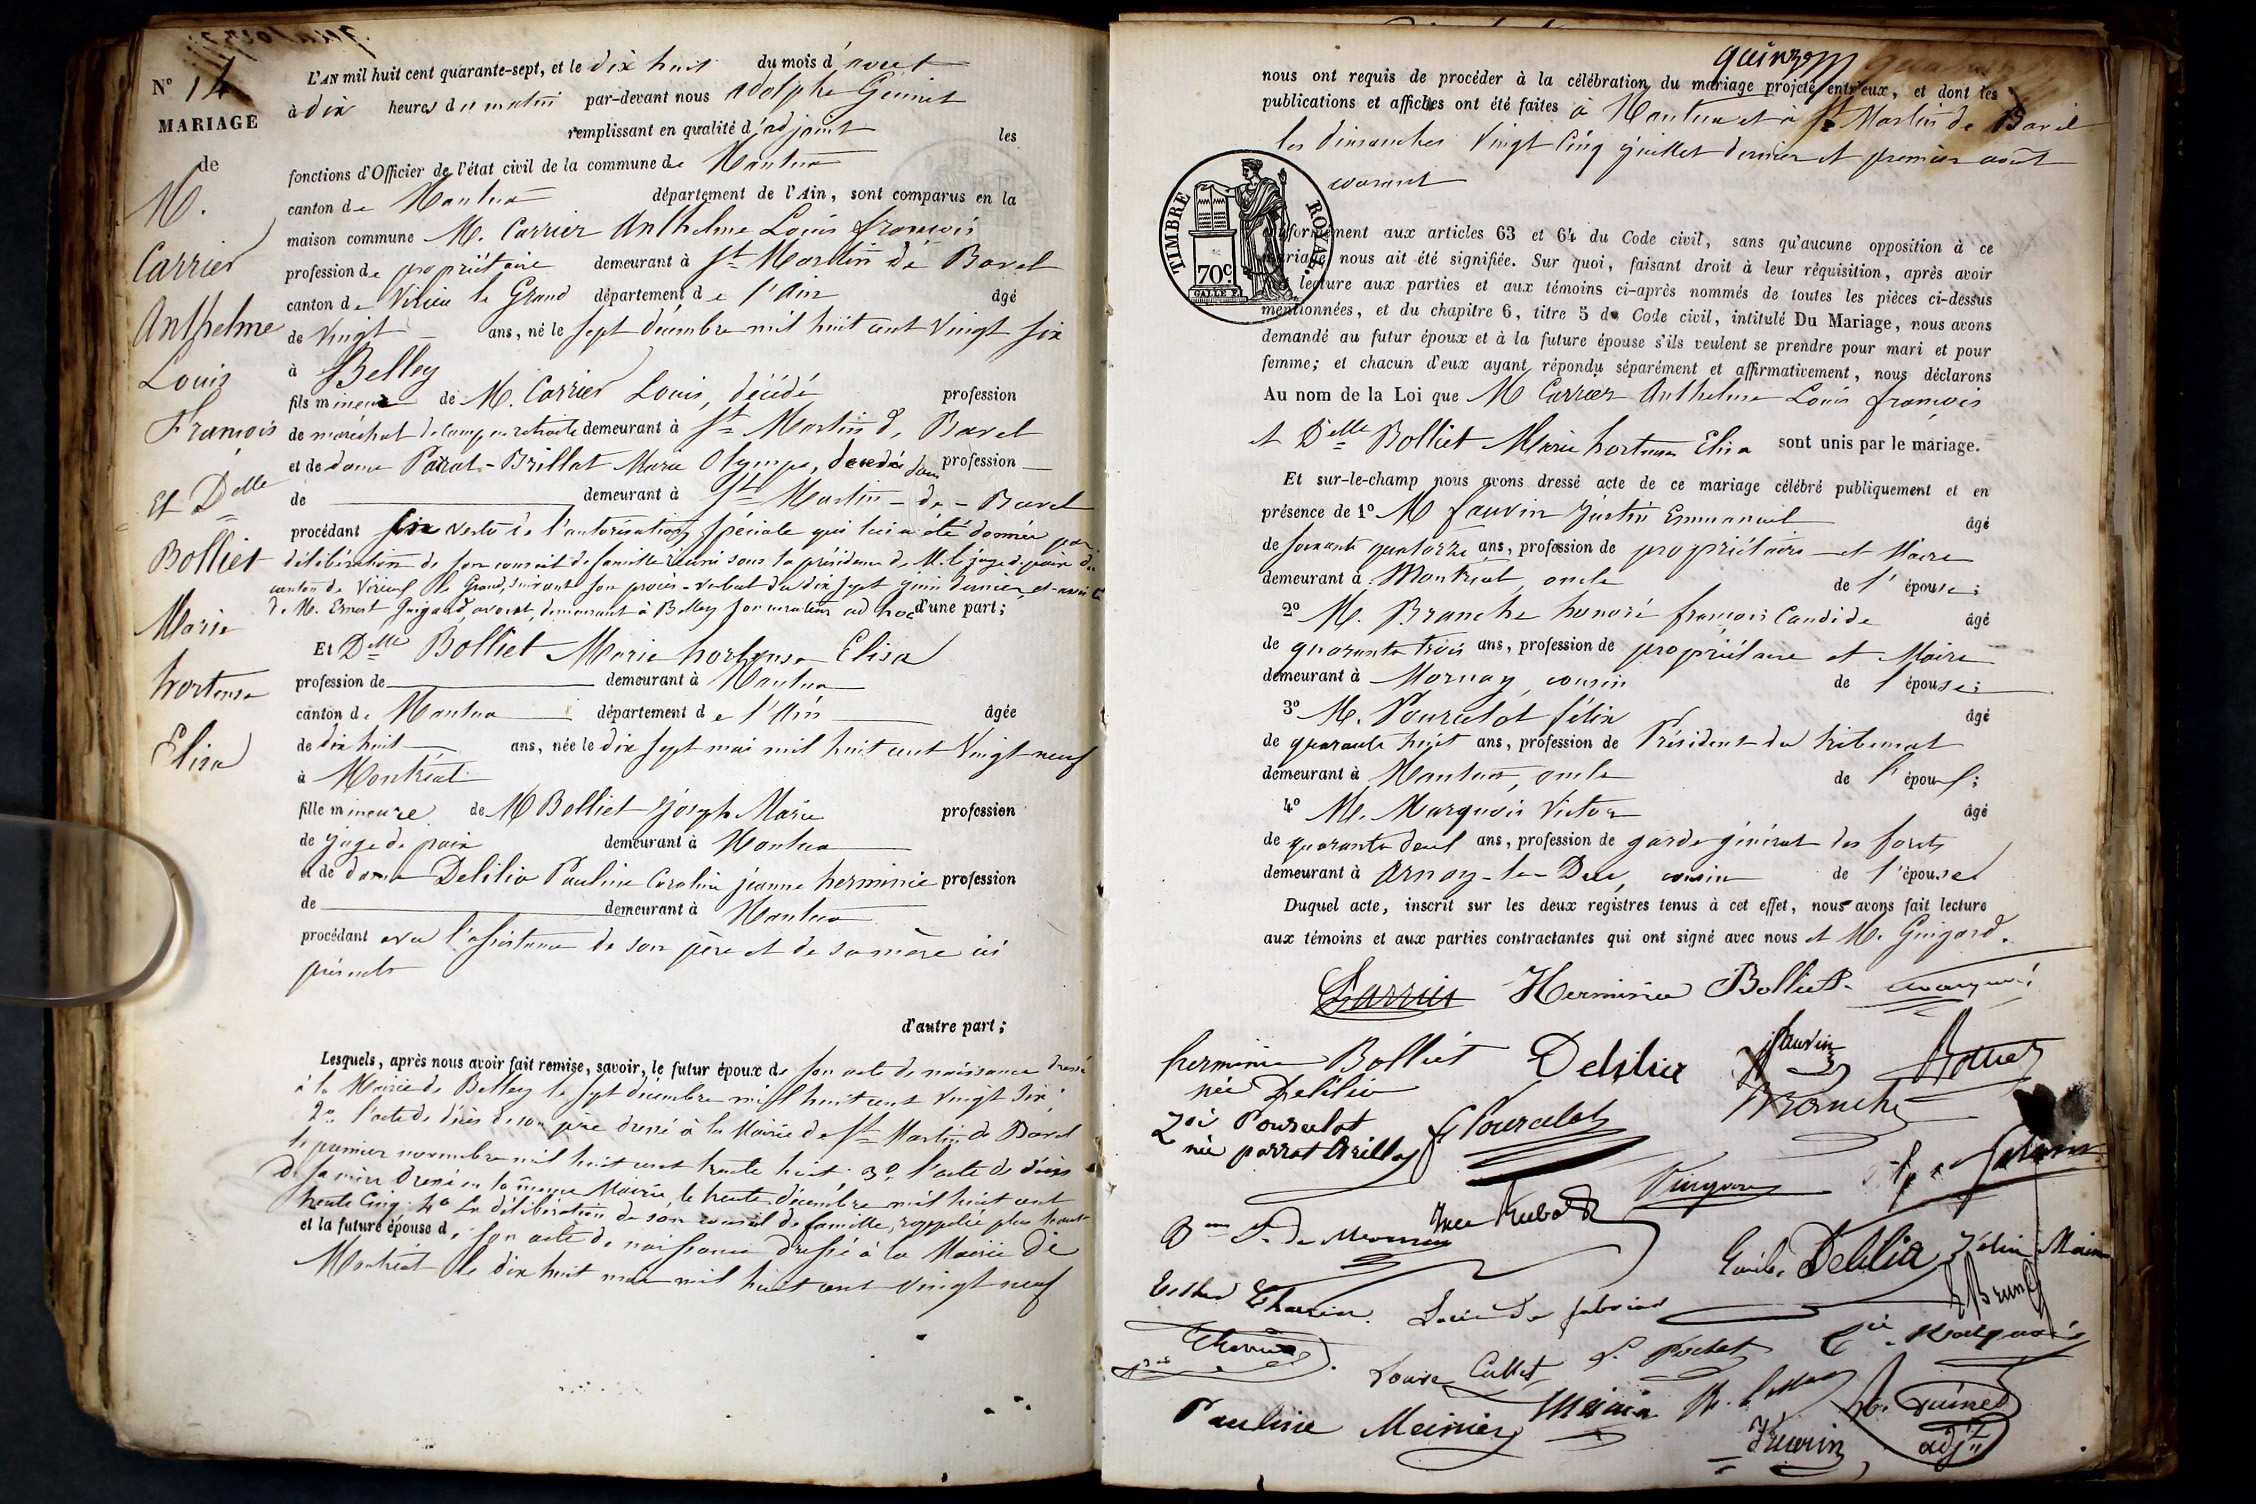 N° 14
MARIAGE
de
M.
Carrier
Anthelme
Louis
François
Et Delle
Bolliet
Marie
hortense
Elisa
L'AN mil huit cent quarante-sept, et le dix huit du mois d'aout
à dix heures du matin par-devant nous Adolphe Guinet
remplissant en qualité d'adjoint les
fonctions d'Officier de l'état civil de la commune de Nantua
canton de Nantua département de l'Ain, sont comparus en la
maison commune M. Carrier Anthelme Louis françois
profession de propriétaire demeurant à St Martin de Bavel
canton de Virieu le Grand département de l'Ain âgé
de vingt ans, né le sept décembre mil huit cent vingt six
à Belley
fils mineur de M. Carrier Louis, décédé profession
de maréchal de camp en retraite demeurant à St Martin de Bavel
et de dame Parrat-Brillat Marie Olympe, décédée profession
de demeurant à St Martin-de-Bavel
procédant en vertu de l'autorisation spéciale qui lui a été donnée par
délibération de son conseil de famille réuni sous la présidence de M. le juge de paix du
canton de Virieu le Grand, suivant son procès-verbal du dix sept juin dernier, et assisté
de M. Ernest Guigard, avocat, demeurant à Belley son curateur ad hoc d'une part;
Et Delle Bolliet Marie hortense Elisa
profession de demeurant à Nantua
canton de Nantua département de l'Ain âgée
de dix huit ans, née le dix sept mai mil huit cent vingt neuf
à Montréal
fille mineure de M Bolliet Joseph Marie profession
de juge de paix demeurant à Nantua
et de dame Delilia Pauline Caroline jeanne herminie profession
de demeurant à Nantua
procédant avec l'assistance de son père et de sa mère ici
présents
d'autre part;
Lesquels, après nous avoir fait remise, savoir, le futur époux de son acte de naissance dressé
à la Mairie de Belley le sept décembre mil huit cent vingt six;
2° l'acte de décès de son père dressé à la Mairie de St Martin de Bavel
le premier novembre mil huit cent trente huit. 3° l'acte de décès
de sa mère dressé en la même Mairie, le trente décembre mil huit cent
trente cinq. 4° La délibération de son conseil de famille, rappelée plus haut
et la future épouse de son acte de naissance dressé à la Mairie de
Montréal le dix huit mai mil huit cent vingt neuf
quinze
nous ont requis de procéder à la célébration du mariage projeté entr'eux, et dont les
publications et affiches ont été faites à Nantua et à St Martin de Bavel
les dimanches vingt cinq juillet dernier et premier août
courant
TIMBRE ROYAL
70c
conformément aux articles 63 et 64 du Code civil, sans qu'aucune opposition à ce
mariage nous ait été signifiée. Sur quoi, faisant droit à leur réquisition, après avoir
lecture aux parties et aux témoins ci-après nommés de toutes les pièces ci-dessus
mentionnées, et du chapitre 6, titre 5 du Code civil, intitulé Du Mariage, nous avons
demandé au futur époux et à la future épouse s'ils veulent se prendre pour mari et pour
femme; et chacun d'eux ayant répondu séparément et affirmativement, nous déclarons
Au nom de la Loi que M Carrier Anthelme Louis françois
et Delle Bolliet Marie hortense Elisa sont unis par le mariage.
Et sur-le-champ nous avons dressé acte de ce mariage célébré publiquement et en
présence de 1° M fauvin Justin Emmanuel âgé
de soixante quatorze ans, profession de propriétaire et Maire
demeurant à Montréal, oncle de l'épouse;
2° M. Branche honoré françois Candide âgé
de quarante trois ans, profession de propriétaire et Maire
demeurant à Mornay, cousin de l'épouse;
3° M. Pourcelot félix âgé
de quarante sept ans, profession de Président du tribunal
demeurant à Nantua, oncle de l'époux;
4° M. Marquois Victor âgé
de quarante deux ans, profession de garde général des forêts
demeurant à Arnay-le-Duc, cousin de l'épouse
Duquel acte, inscrit sur les deux registres tenus à cet effet, nous avons fait lecture
aux témoins et aux parties contractantes qui ont signé avec nous et M. Guigard.
Carrier Herminie Bolliet
herminie Bolliet Delilia fauvin Bolliet
née Delilia Branche
Zoé Pourcelot F. Pourcelot
née parrat Brillat
Emile Delilia
Esther
Brun
Louise Cullet L. Pochet Marquois
Pauline Meinier
Guinet
adjt